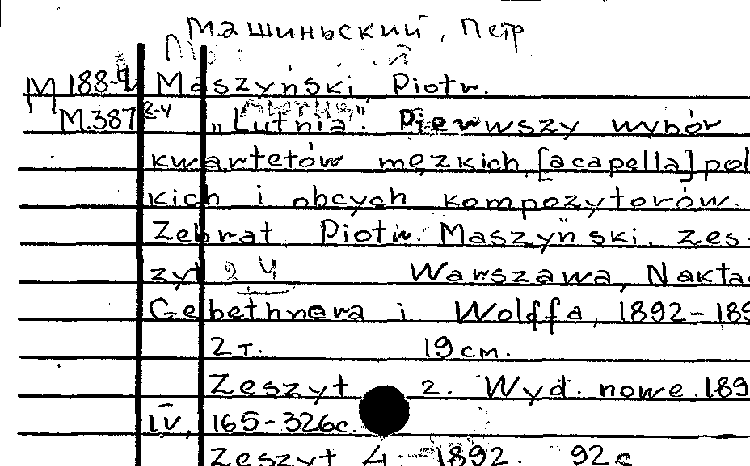 Машиньский, Петр
M 188-4 Maszyński Piotr.
M.387 2-4 „Lutnia". Pierwszy wybór
kwartetów męzkich, [acapella] pol
kich i obcych kompozytorów.
Zebrat Piotr Maszyński. Zes-
zyt 2 4 Warszawa, Nakta
Gebethnera i Wolffa, 1892-189
2т. 19 cm.
Zeszyt 2. Wyd. nowe. 189
IV, 165-326c.
Zeszyt 4 - 1892. 92c